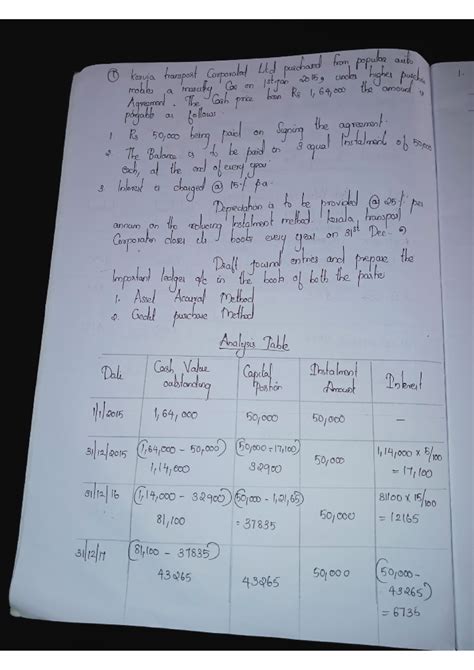 transport Corporated Ltd purchased from popular auto
mobiles a Car on 1st Jan 2015, under higher purchase
Agreement. The Cash price been Rs 1,64,000 the amount is
payable as follows
1 Rs 50,000 being paid on Signing the agreement.
2. The Balance is to be paid on 3 equal Instalment of 50,000
each, at the end of every year.
3 Interest is charged @ 15% p.a.
Depreciation is to be provided @ 25% per
annum on the reducing Instalment method kerala transport
Corporation closes its books every year on 31st Dec.
Draft Journal entries and prepare the
Important ledger a/c in the book of both the parties
1. Asset Accural Method
2. Credit purchase Method
Analysis Table
Date Cash Value outstanding Capital Portion Instalment Amount Interest
1/1/2015 1,64,000 50,000 50,000 -
31/12/2015 (1,64,000 - 50,000) 1,14,000 (50,000 - 17,100) 32900 50,000 1,14,000 × 15/100 = 17,100
31/12/16 (1,14,000 - 32900) 81,100 (50,000 - 1,21,65) = 37835 50,000 81100 × 15/100 = 12165
31/12/17 (81,100 - 37835) 43265 43265 50,000 (50,000 - 43265) = 6735